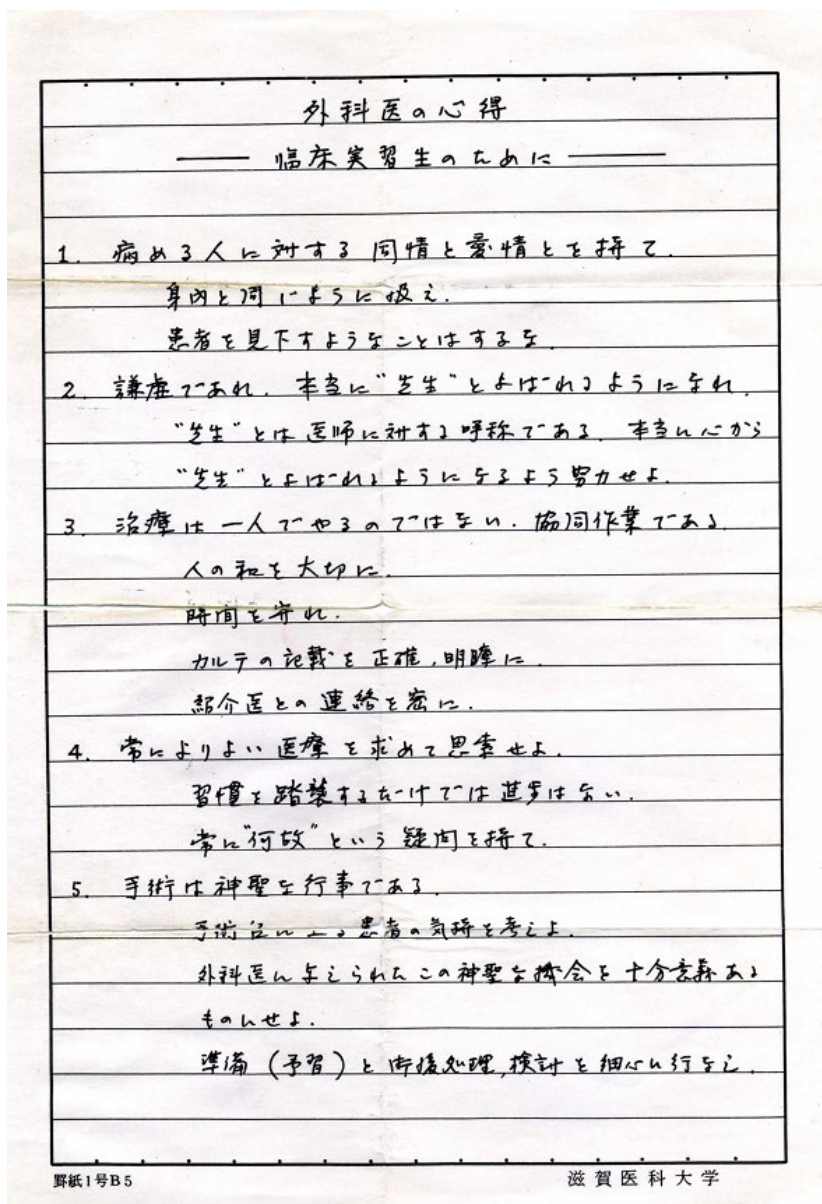 外科医の心得
—— 臨床実習生のために ——
1. 病める人に対する同情と愛情とを持て.
身内と同じように扱え.
患者を見下すようなことはするな.
2. 謙虚であれ. 本当に"先生"とよばれるようになれ.
"先生"とは医師に対する呼称である. 本当に心から
"先生"とよばれるようになるよう努力せよ.
3. 治療は一人でやるのではない. 協同作業である.
人の和を大切に.
時間を守れ.
カルテの記載を正確,明瞭に.
紹介医との連絡を密に.
4. 常によりよい医療を求めて思索せよ.
習慣を踏襲するだけでは進歩はない.
常に"何故"という疑問を持て.
5. 手術は神聖な行事である.
手術台に上る患者の気持を考えよ.
外科医に与えられたこの神聖な機会を十分意義ある
ものにせよ.
準備(予習)と術後処理,検討を細心に行なえ.
罫紙1号B5
滋賀医科大学